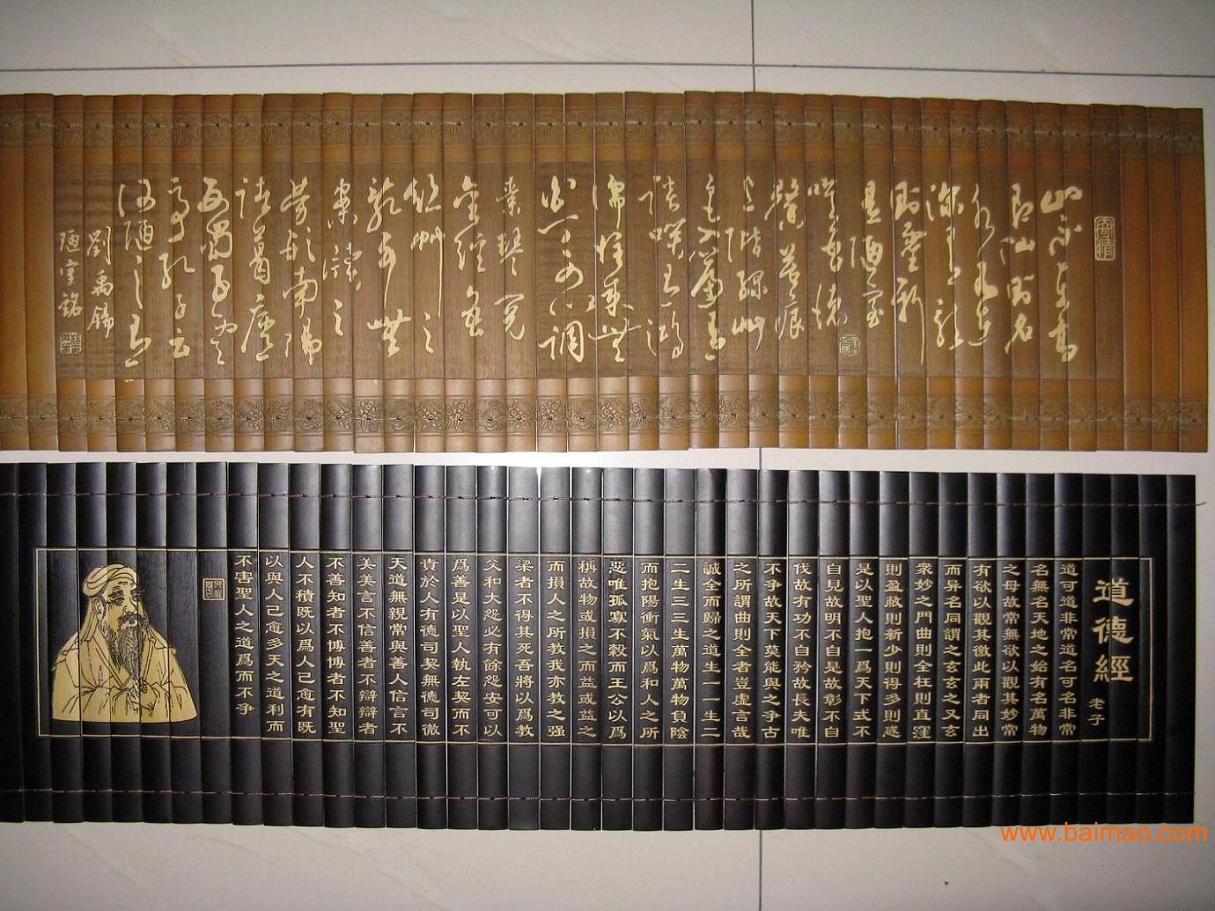 山不在高
有仙則名
水不在
深有龍
則靈斯
是陋室
惟吾德
馨苔痕
上階綠草
色入簾青
談笑有鴻
儒往來無
白丁可以調
素琴閱
金經無
絲竹之
亂耳無
案牘之
勞形南陽
諸葛廬
西蜀子雲
亭孔子云
何陋之有
劉禹錫
陋室銘
道德經
老子
道可道非常道名可名非常
名無名天地之始有名萬物
之母故常無欲以觀其妙常
有欲以觀其徼此兩者同出
而异名同謂之玄玄之又玄
衆妙之門曲則全枉則直窪
則盈敝則新少則得多則惑
是以聖人抱一爲天下式不
自見故明不自是故彰不自
伐故有功不自矜故長夫唯
不爭故天下莫能與之爭古
之所謂曲則全者豈虛言哉
誠全而歸之道生一一生二
二生三三生萬物萬物負陰
而抱陽衝氣以爲和人之所
惡唯孤寡不榖而王公以爲
稱故物或損之而益或益之
而損人之所教我亦教之强
梁者不得其死吾將以爲教
父和大怨必有餘怨安可以
爲善是以聖人執左契而不
責於人有德司契無德司徹
天道無親常與善人信言不
美美言不信善者不辯辯者
不善知者不博博者不知聖
人不積既以爲人己愈有既
以與人己愈多天之道利而
不害聖人之道爲而不爭
www.baimao.com